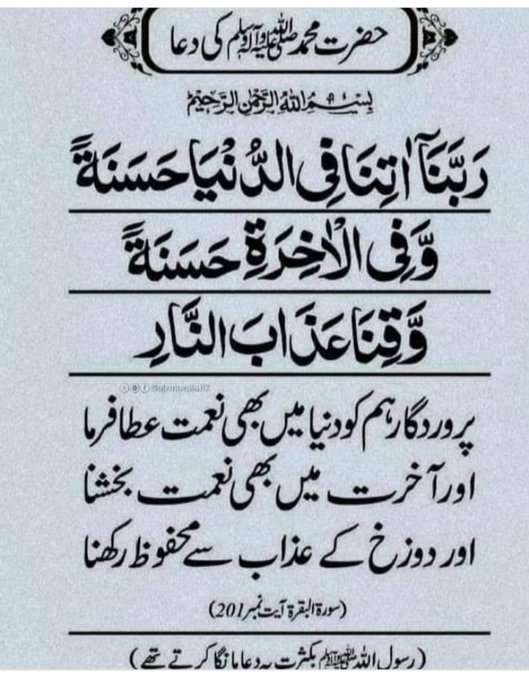 حضرت محمد ﷺ کی دعا
بِسْمِ اللهِ الرَّحْمٰنِ الرَّحِيْمِ
رَبَّنَآ اٰتِنَا فِى الدُّنْيَا حَسَنَةً
وَّفِى الْاٰخِرَةِ حَسَنَةً
وَّقِنَا عَذَابَ النَّارِ
پروردگار ہم کو دنیا میں بھی نعمت عطا فرما
اور آخرت میں بھی نعمت بخشنا
اور دوزخ کے عذاب سے محفوظ رکھنا
(سورۃ البقرۃ آیت نمبر 201)
(رسول اللہ ﷺ بکثرت یہ دعا مانگا کرتے تھے)